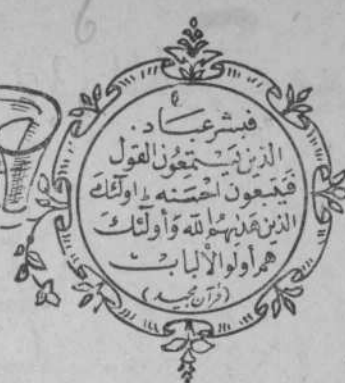 فبشر عباد.
الذين يستمعون القول
فيتبعون احسنه ط اولئك
الذين هدىهم الله وأولئك
هم أولوا الألباب
(قرآن مجيد)